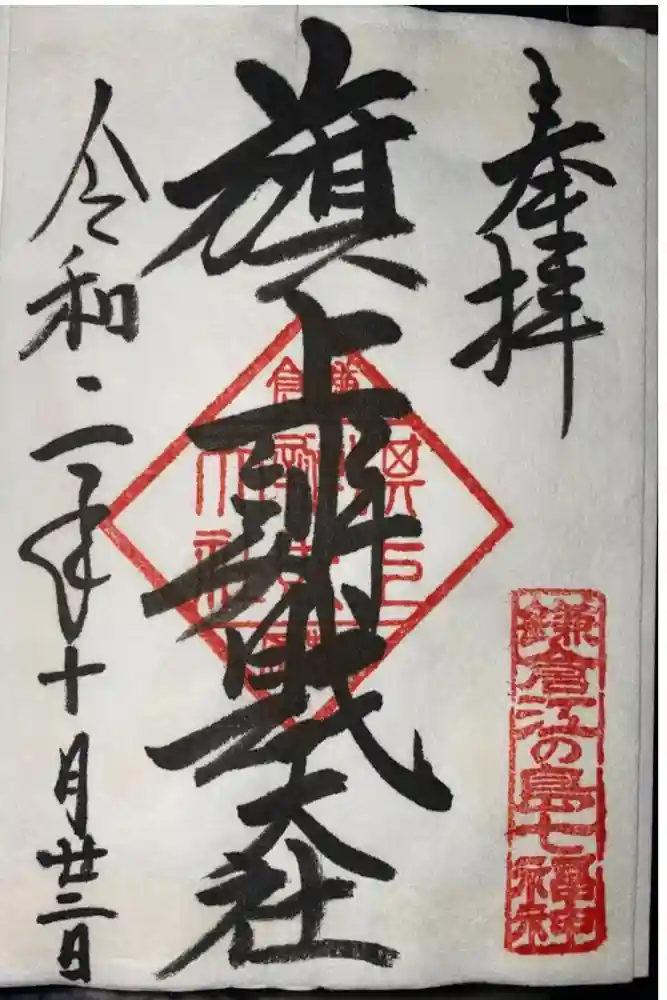 奉拝
鎌倉江の島七福神
旗上辨財天社
令和二年十月廿二日